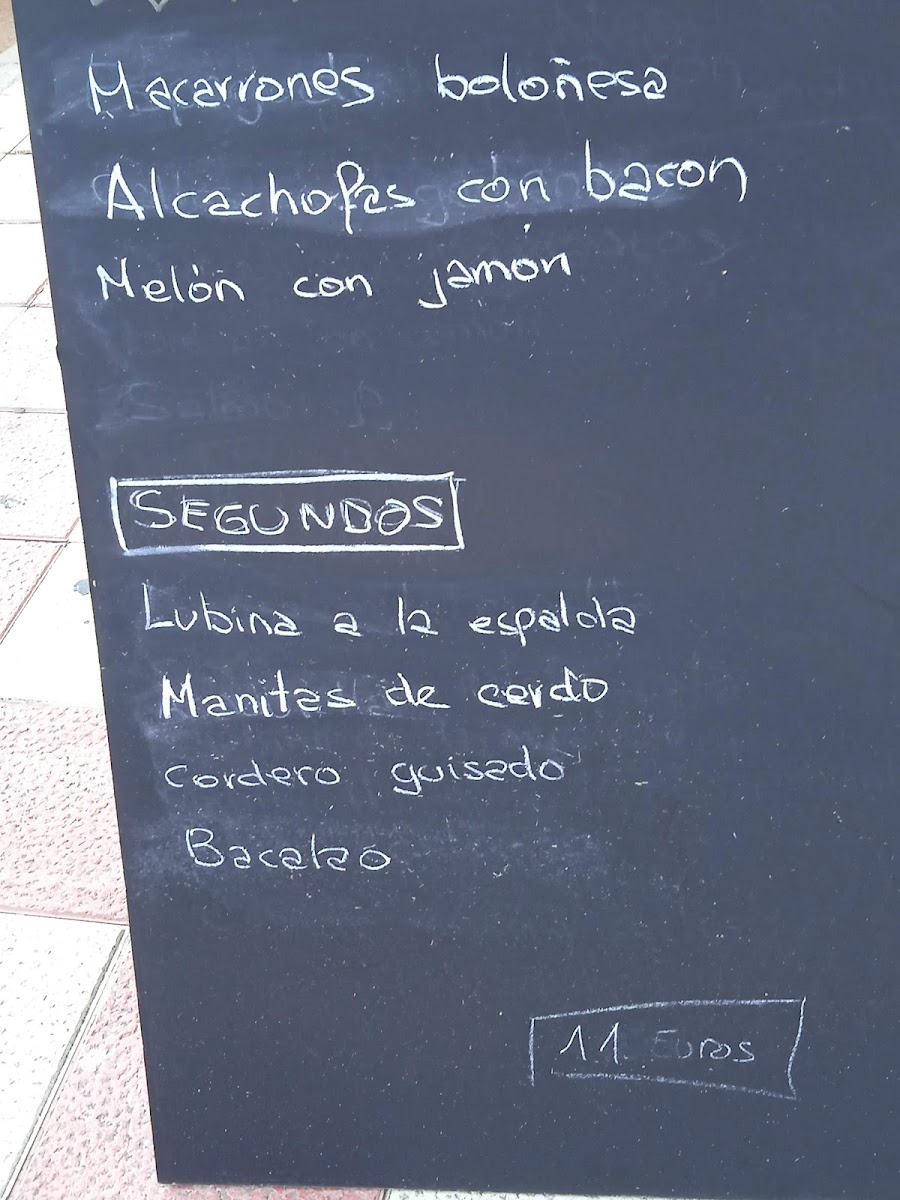 Macarrones boloñesa
Alcachofas con bacon
Melón con jamón
SEGUNDOS
Lubina a la espalda
Manitas de cerdo
cordero guisado
Bacalao
11 Euros